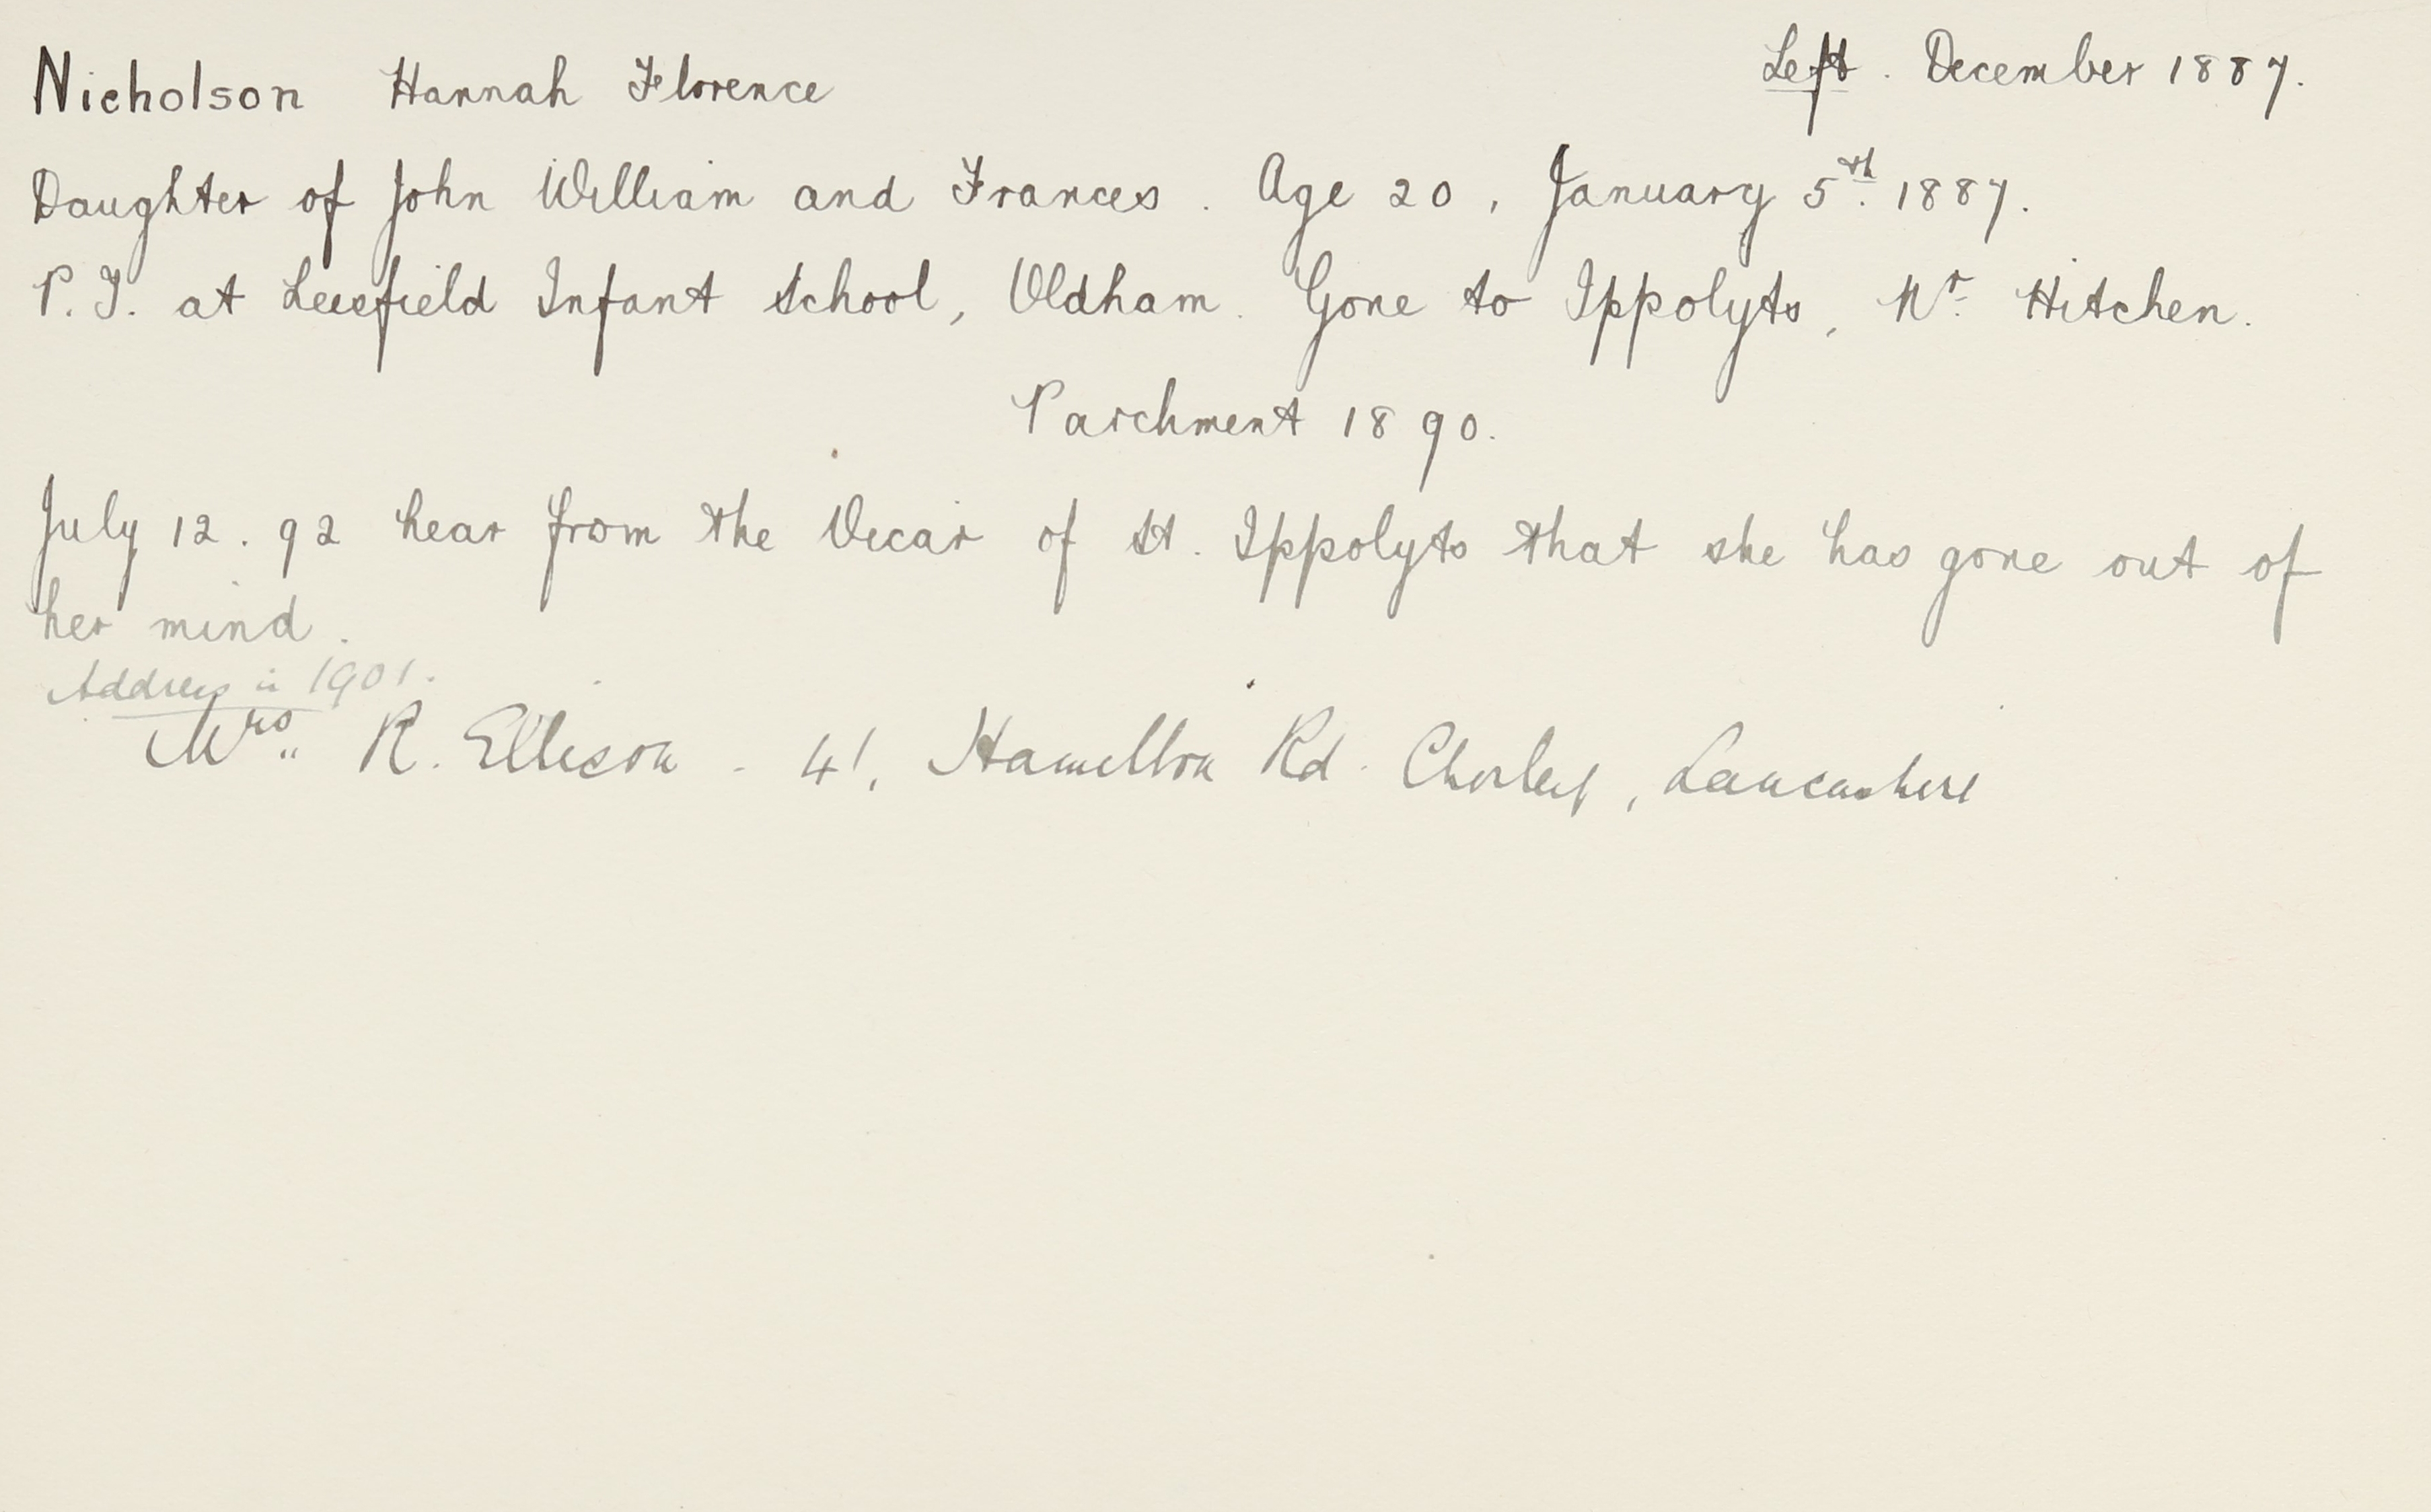 Nicholson Hannah Florence Left. December 1887.
Daughter of John William and Frances. Age 20, January 5th. 1887.
P.T. at Leesfield Infant School, Oldham. Gone to Ippolyts, Nr. Hitchen.
Parchment 1890.
July 12. 92 hear from the Vicar of St. Ippolyts that she has gone out of
her mind.
Address in 1901.
Mrs. R. Ellison - 41, Hamilton Rd. Chorley, Lancashire